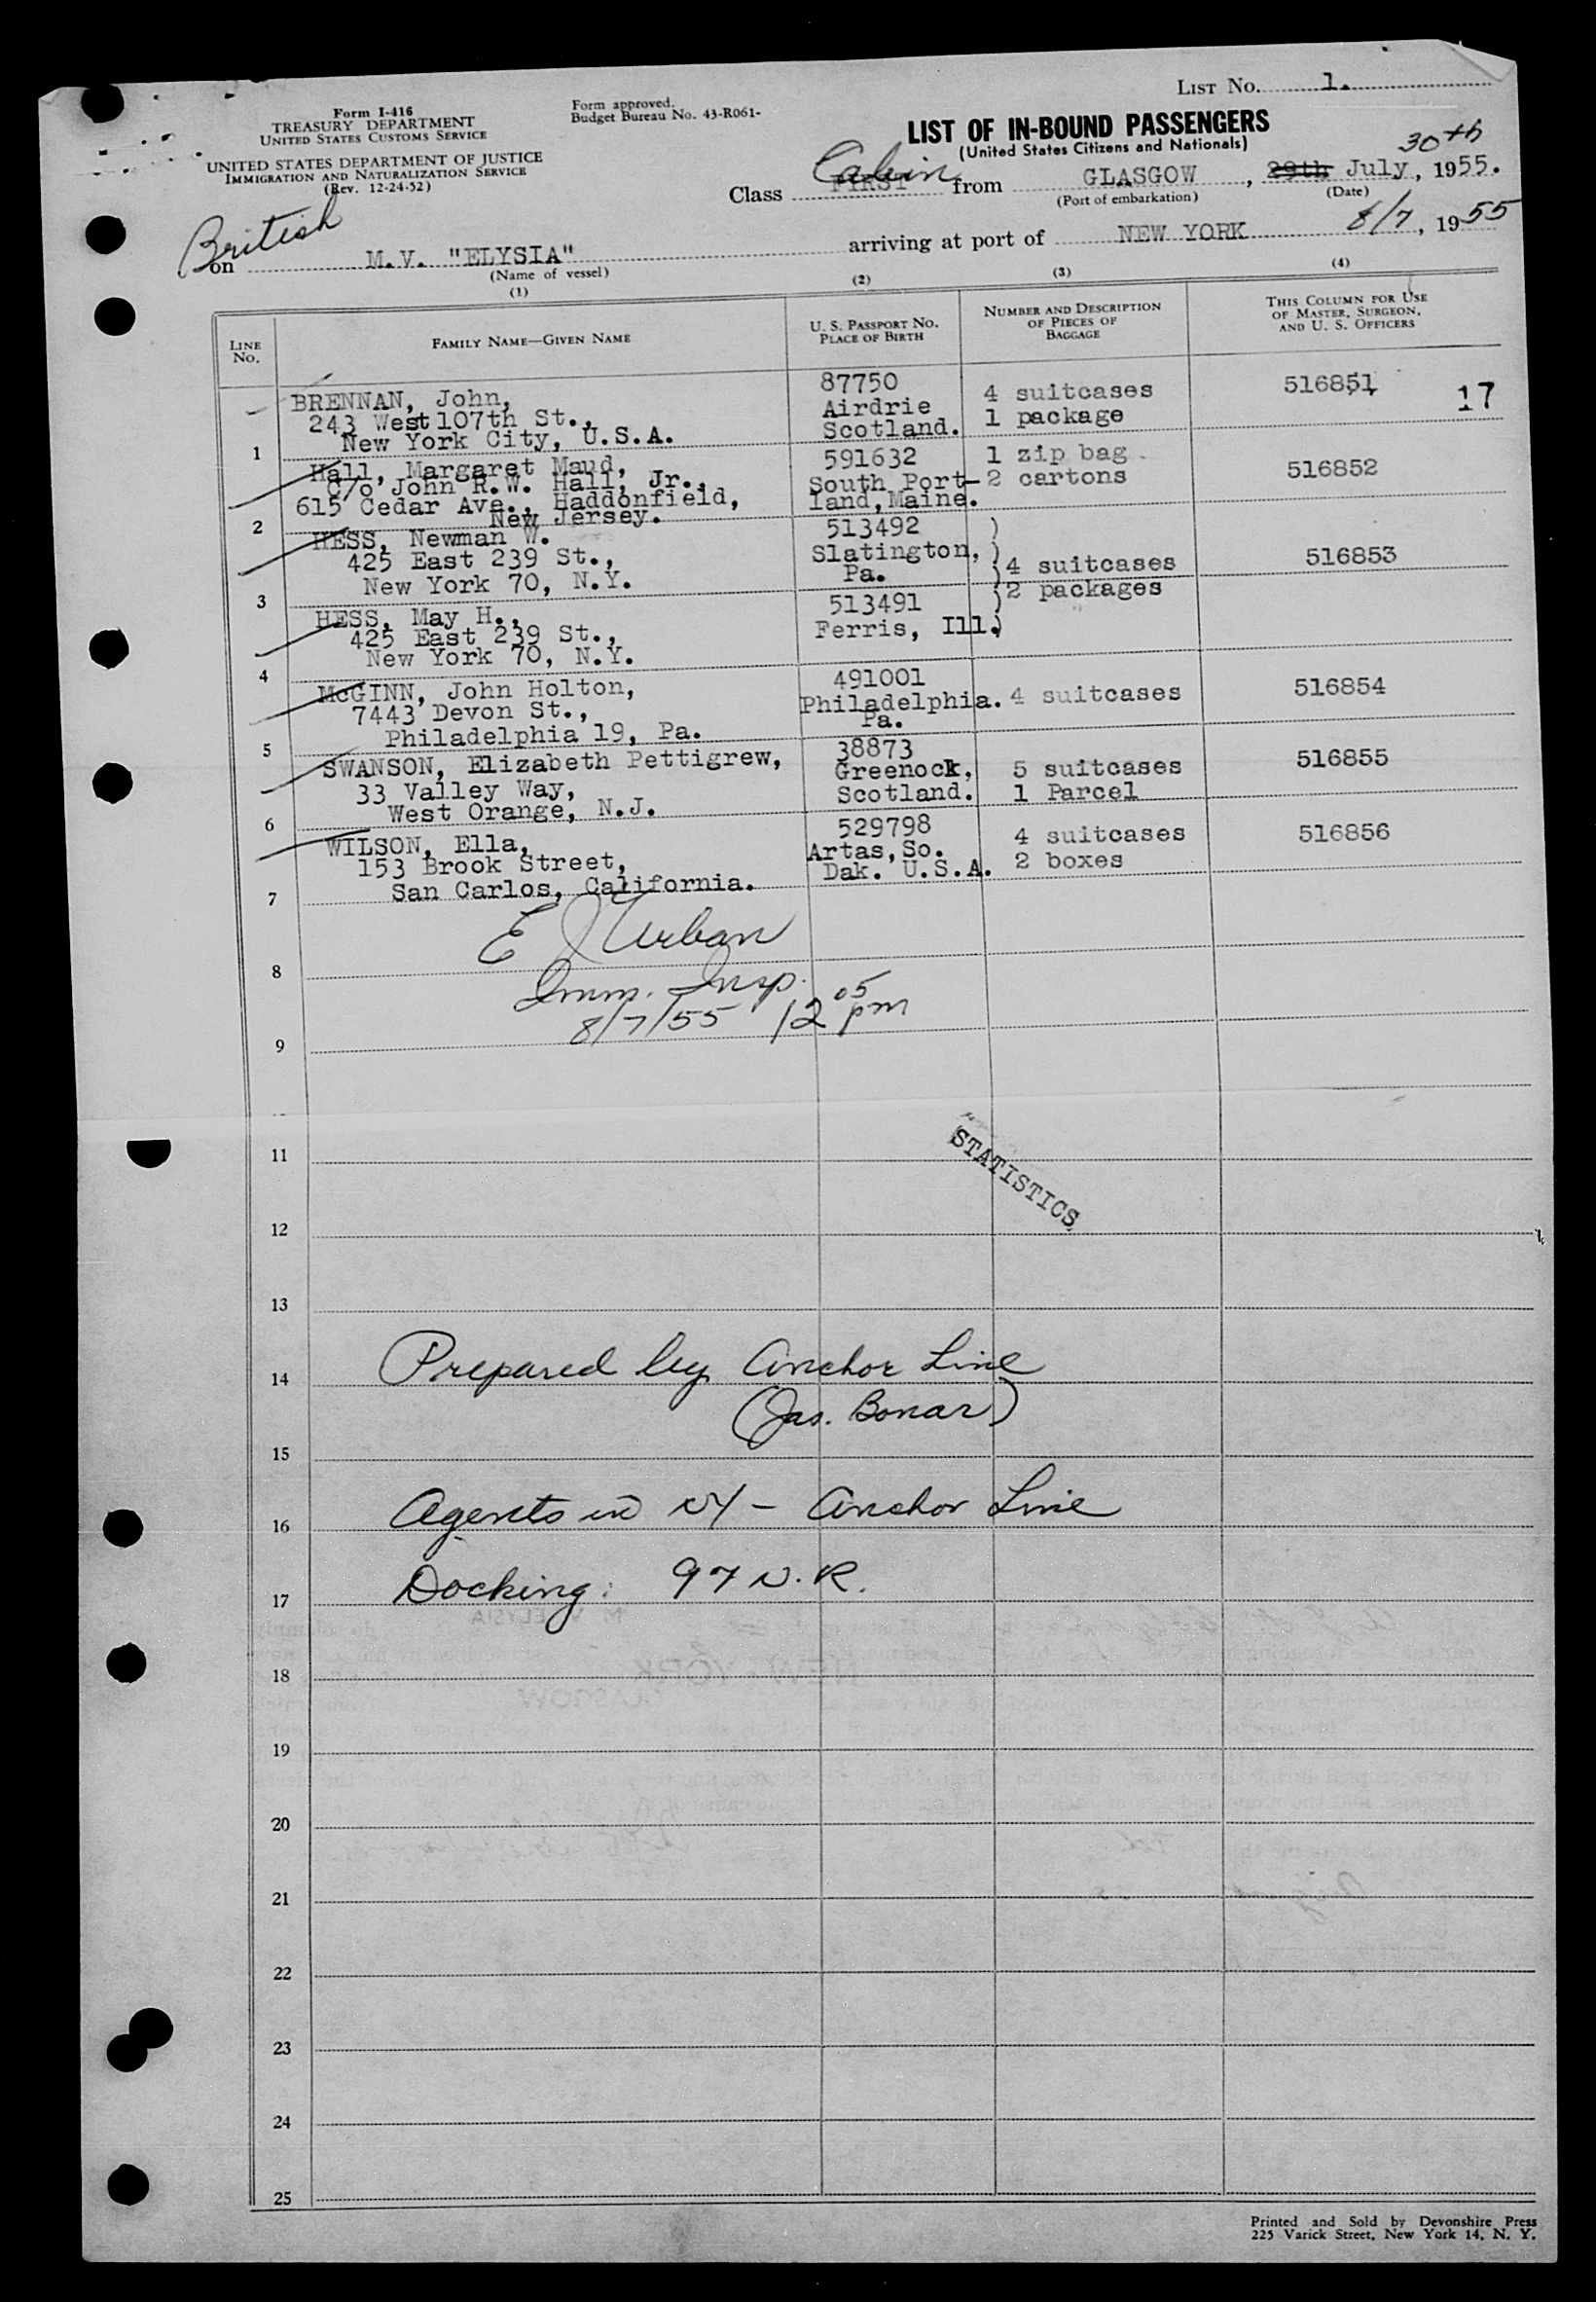 LIST No. 1.
Form I-416
TREASURY DEPARTMENT
UNITED STATES CUSTOMS SERVICE
UNITED STATES DEPARTMENT OF JUSTICE
IMMIGRATION AND NATURALIZATION SERVICE
(Rev. 12-24-52)
Form approved.
Budget Bureau No. 43-R061-
LIST OF IN-BOUND PASSENGERS
(United States Citizens and Nationals)
Cabin 30th
Class FIRST from GLASGOW, 29th July, 1955.
(Port of embarkation) (Date)
British
on M.V. "ELYSIA" arriving at port of NEW YORK 8/7, 1955
(Name of vessel)
(1) (2) (3) (4)
LINE No.
FAMILY NAME—GIVEN NAME
U. S. PASSPORT No.
PLACE OF BIRTH
NUMBER AND DESCRIPTION
OF PIECES OF
BAGGAGE
THIS COLUMN FOR USE
OF MASTER, SURGEON,
AND U. S. OFFICERS
1
BRENNAN, John,
243 West 107th St.,
New York City, U.S.A.
87750
Airdrie
Scotland.
4 suitcases
1 package
516851
17
2
Hall, Margaret Maud,
C/o John R.W. Hall, Jr.,
615 Cedar Ave., Haddonfield,
New Jersey.
591632
South Port-
land, Maine.
1 zip bag
2 cartons
516852
3
HESS, Newman W.
425 East 239 St.,
New York 70, N.Y.
513492 )
Slatington, )
Pa. )
4 suitcases
2 packages
516853
4
HESS, May H.,
425 East 239 St.,
New York 70, N.Y.
513491 )
Ferris, Ill.)
5
McGINN, John Holton,
7443 Devon St.,
Philadelphia 19, Pa.
491001
Philadelphia.
Pa.
4 suitcases
516854
6
SWANSON, Elizabeth Pettigrew,
33 Valley Way,
West Orange, N.J.
38873
Greenock,
Scotland.
5 suitcases
1 Parcel
516855
7
WILSON, Ella,
153 Brook Street,
San Carlos, California.
529798
Artas, So.
Dak. U.S.A.
4 suitcases
2 boxes
516856
E J Urban
8
Imm. Insp.
8/7/55 12 05 pm
9
STATISTICS
11
12
13
14 Prepared by Anchor Line
(Jas. Bonar)
15
16 Agents in NY - Anchor Line
17 Docking: 97 N.R.
18
19
20
21
22
23
24
25
Printed and Sold by Devonshire Press
225 Varick Street, New York 14, N. Y.